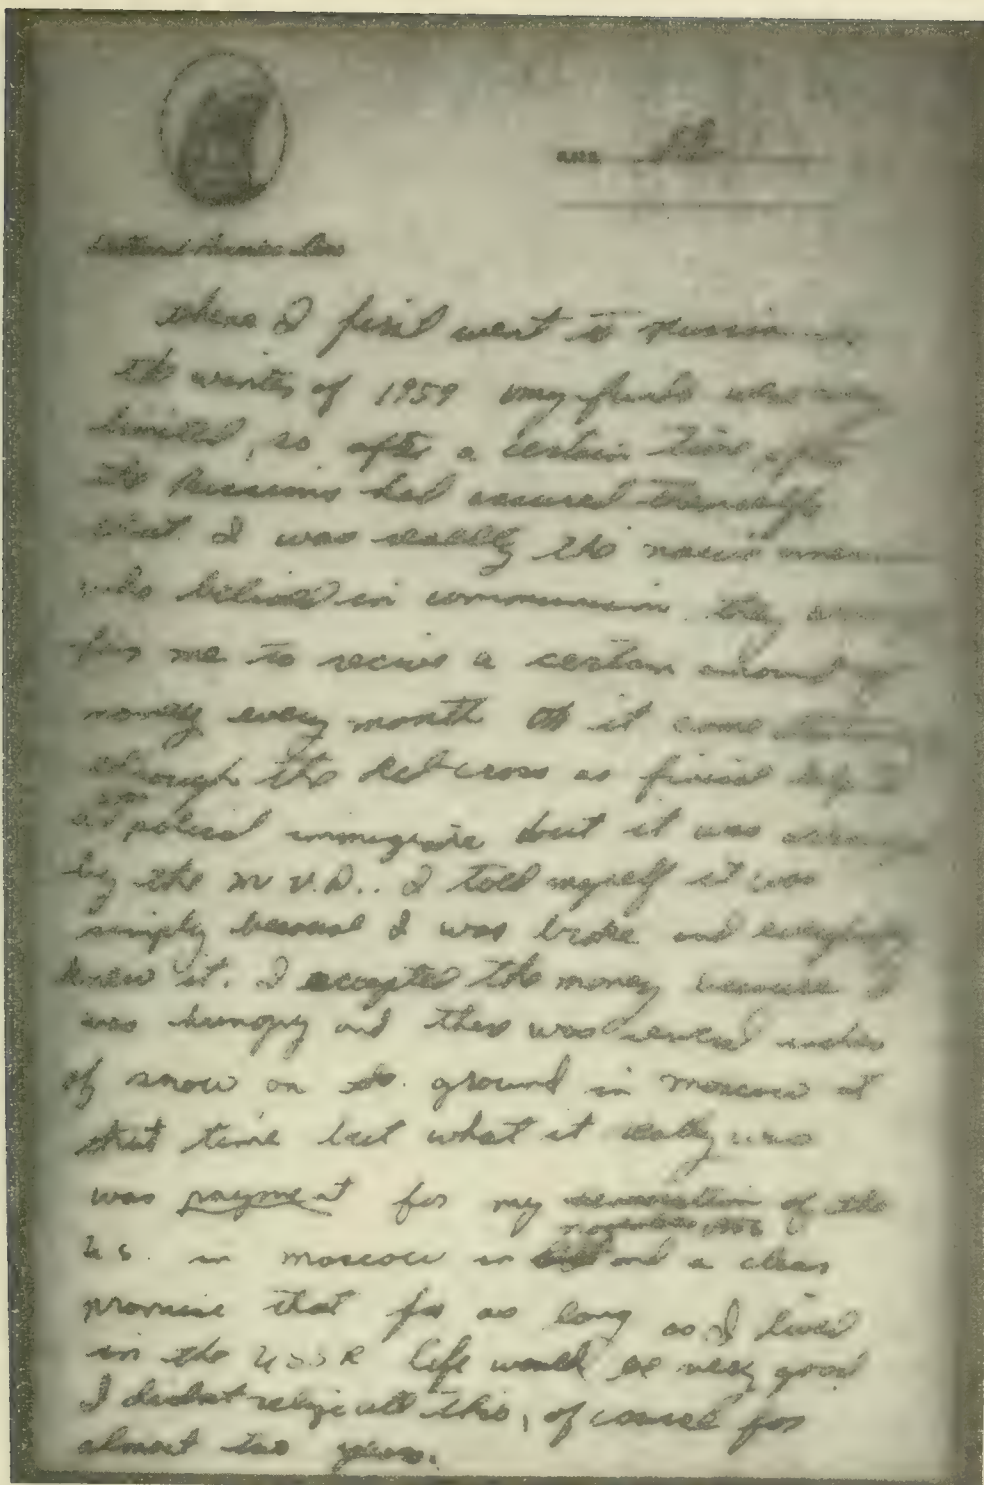 Holland-America Line
where I first went to Russia
the winter of 1959 my funds where very
limited, so after a certain time, after
the Russians had assured themselfs
that I was really the naive amer
who belived in communism they
for me to recive a certain amount of
money every month it came
through the Red-cross as finicial help
polical immigrate but it was
by the M.V.D.. I told myself it was
simply because I was broke and everybody
knew it. I accepted the money because I
was hungry and there was several inches
of snow on the ground in Moscow at
that time but what it really was
was payment for my of the
november
U.S. in moscow in and a clear
promise that for as long as I lived
in the USSR life would be very good
I didn't relize all this, of course for
almost two years.